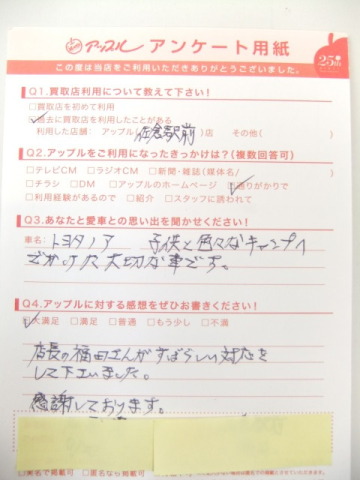 アップル アンケート用紙
25th
この度は当店をご利用いただきありがとうございました。
Q1.買取店利用について教えて下さい！
□買取店を初めて利用
□過去に買取店を利用したことがある
利用した店舗： アップル(佐倉駅前)店 その他( )
Q2.アップルをご利用になったきっかけは？(複数回答可)
□テレビCM □ラジオCM □新聞・雑誌(媒体名/ )
□チラシ □DM □アップルのホームページ □通りがかりで
□利用経験があるので □紹介 □スタッフに誘われて
Q3.あなたと愛車との思い出を聞かせください！
車名：トヨタノア 子供と色々なキャンプイ
でかけた大切な車です。
Q4.アップルに対する感想をぜひお書きください！
□大満足 □満足 □普通 □もう少し □不満
店長の福田さんがすばらしい対応を
して下さいました。
感謝しております。
□実名で掲載可 □匿名なら掲載可